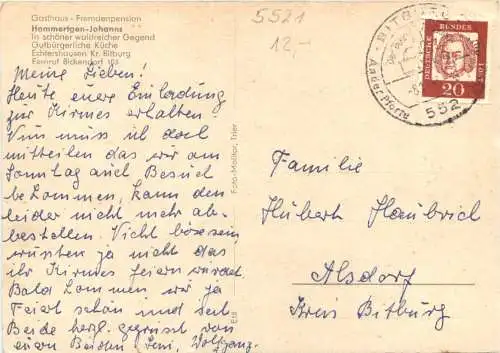 Gasthaus - Fremdenpension
Hommertgen-Johanns
In schöner waldreicher Gegend
Gutbürgerliche Küche
Echtershausen Kr. Bitburg
Fernruf Bickendorf 105
Meine Lieben!
Heute eure Einladung
zur Kirmes erhalten!
Nun muss ich doch
mitteilen das wir am
Sonntag auch Besuch
bekommen, kann den
leider nicht mehr ab-
bestellen. Nicht böse sein
wussten ja nicht das
ihr Kirmes feiern würdet.
Bald kommen wir ja
Feiert schön und seit
Beide herzl. gegrüsst von
euren Beiden Leni, Wolfgang.
Foto-Mollitor, Trier
5521
12,-
BITBURG
552
DEUTSCHE
BUNDES
20
Familie
Hubert Haubrich
Alsdorf
Kreis Bitburg